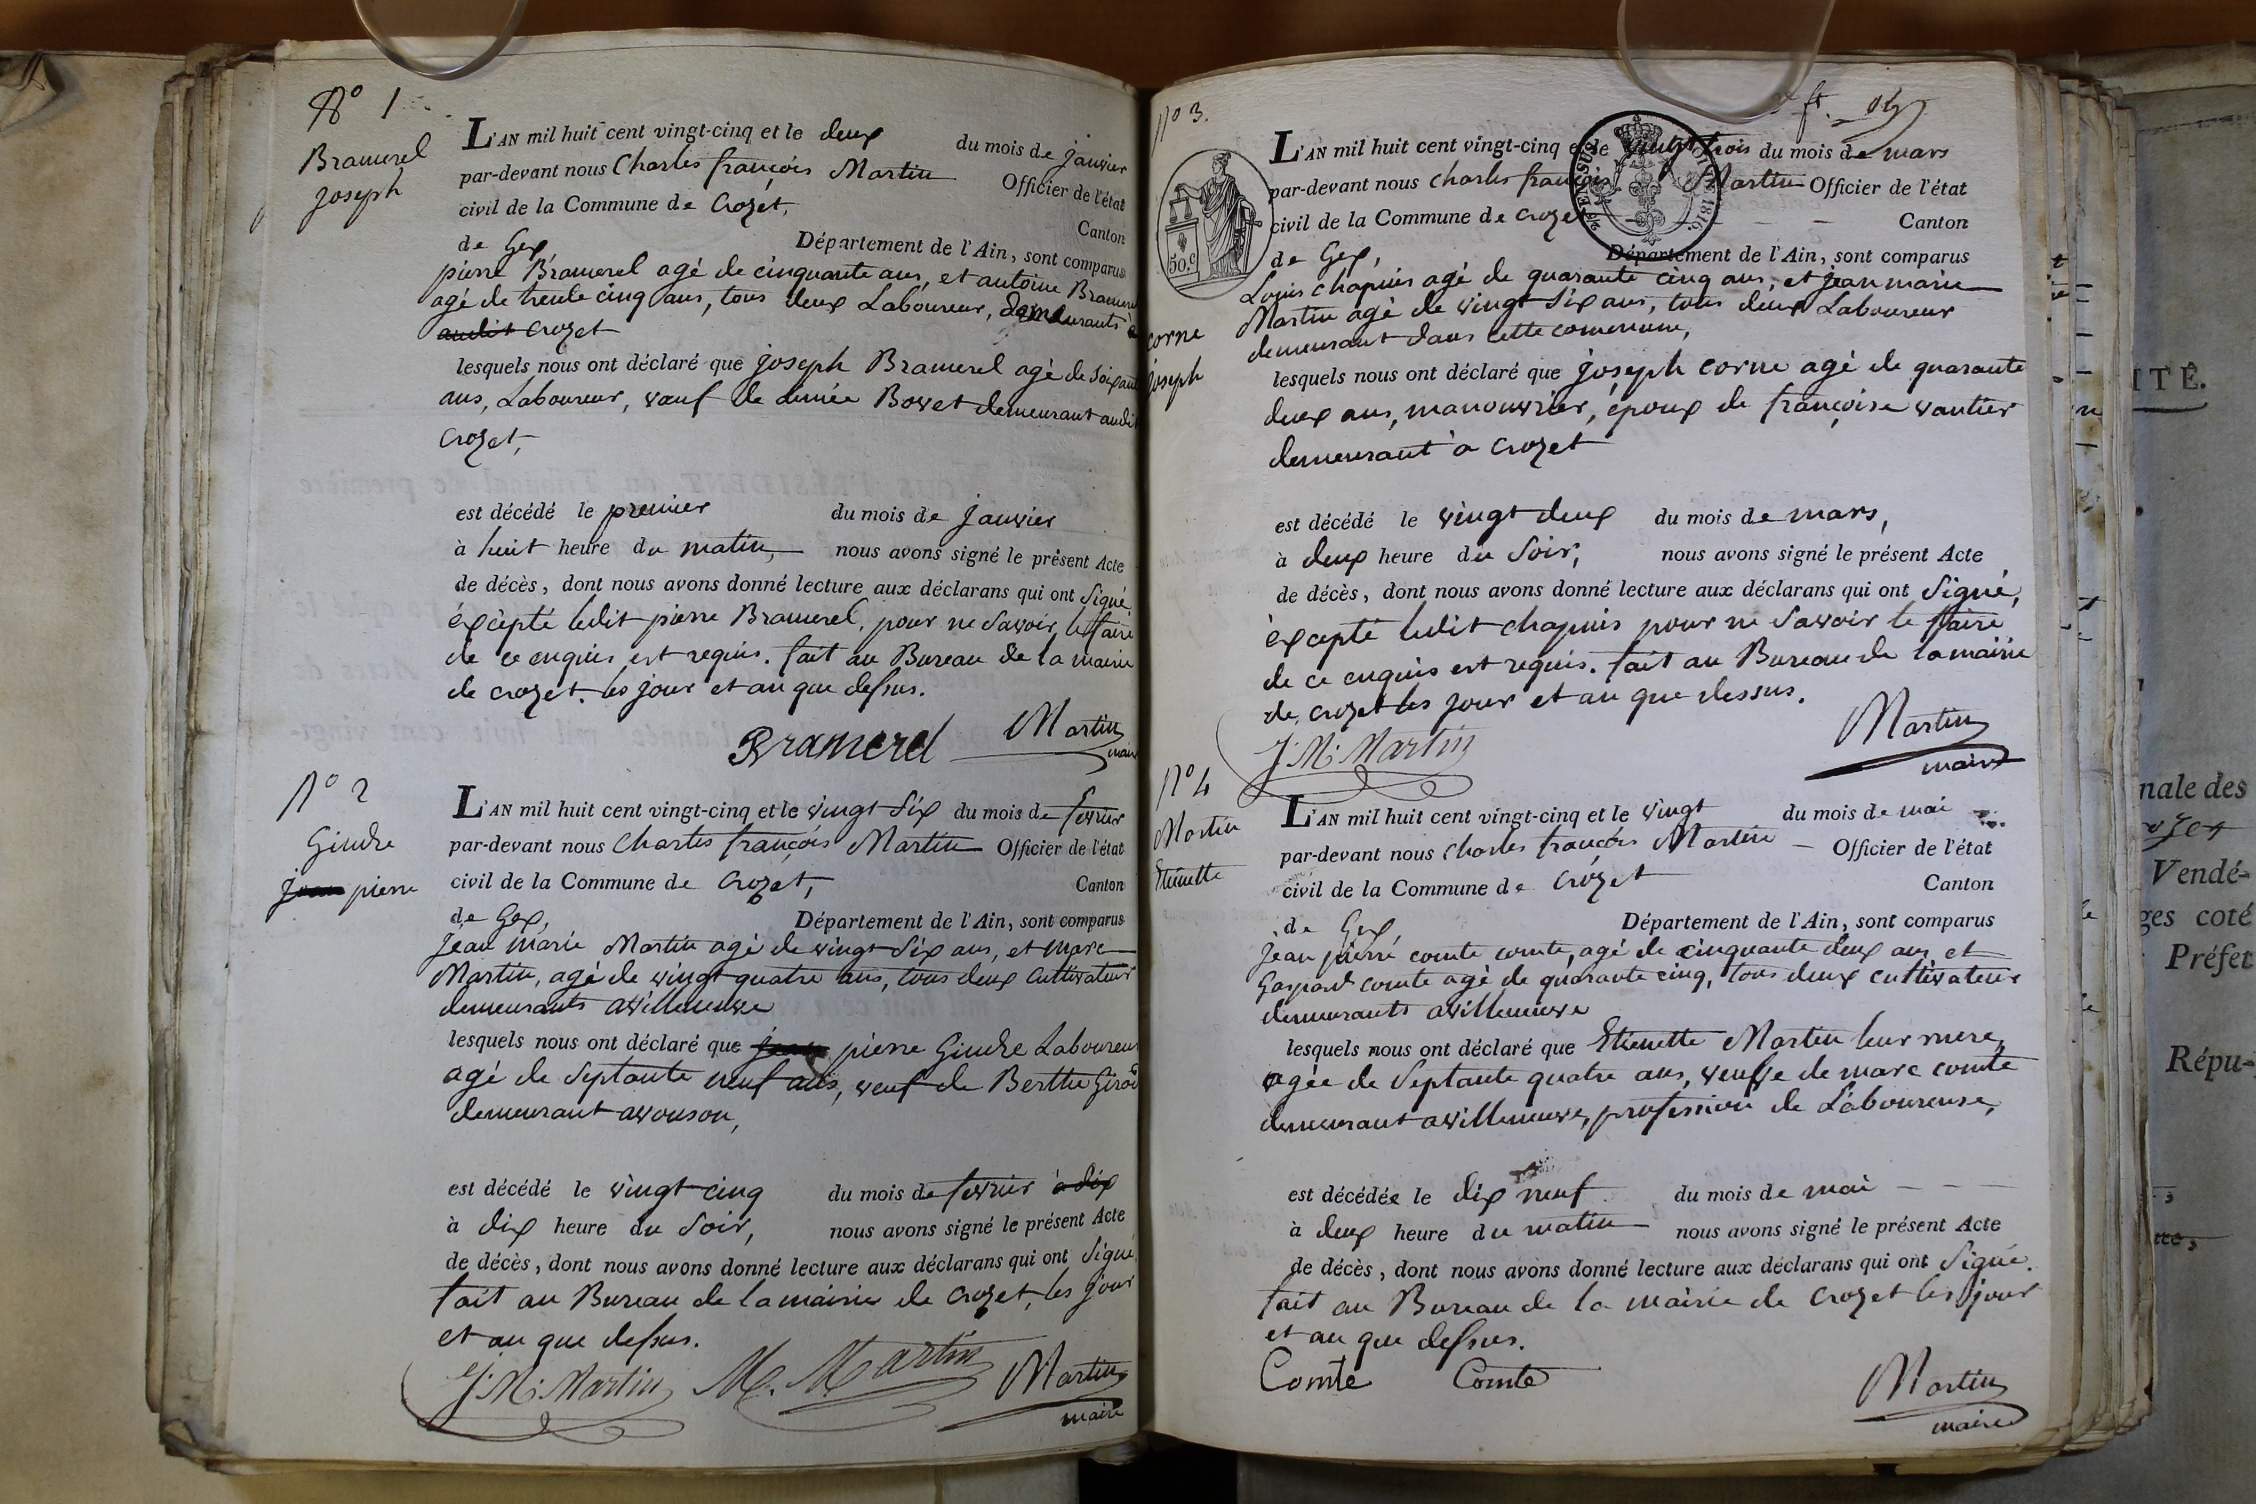 N° 1
Bramerel
joseph
L'AN mil huit cent vingt-cinq et le deux du mois de janvier
par-devant nous Charles françois Martin Officier de l'état
civil de la Commune de Crozet, Canton
de Gex, Département de l'Ain, sont comparus
pierre Bramerel agé de cinquante ans, et antoine Bramerel
agé de trente cinq ans, tous deux Laboureur, demeurants à
audit crozet
lesquels nous ont déclaré que joseph Bramerel agé de soixante
ans, Laboureur, veuf de aimée Bovet demeurant audit
Crozet,
est décédé le premier du mois de janvier
à huit heure du matin, nous avons signé le présent Acte
de décès, dont nous avons donné lecture aux déclarans qui ont Signé,
éxcépté ledit pierre Bramerel, pour ne Savoir le faire
de ce enquis est requis. fait au Bureau de la mairie
de crozet. les jour et an que dessus.
Bramerel Martin
maire
N° 2
Gindre
jean pierre
L'AN mil huit cent vingt-cinq et le vingt Six du mois de fevrier
par-devant nous Charles françois Martin Officier de l'état
civil de la Commune de Crozet, Canton
de Gex, Département de l'Ain, sont comparus
Jean marie Martin agé de vingt Six ans, et marc
Martin, agé de vingt quatre ans, tous deux Cultivateur
demeurants avilleneuve
lesquels nous ont déclaré que jean pierre Gindre Laboureur
agé de Septante neuf ans, veuf de Berthe Girod
demeurant avouson,
est décédé le vingt cinq du mois de fevrier à dix
à dix heure du Soir, nous avons signé le présent Acte
de décès, dont nous avons donné lecture aux déclarans qui ont Signé
fait au Bureau de la mairie de crozet, les jour
et an que dessus.
J. M. Martin M. Martin Martin
maire
N° 3.
L'AN mil huit cent vingt-cinq et le vingt trois du mois de mars
par-devant nous charles françois Martin Officier de l'état
civil de la Commune de crozet Canton
de Gex, Département de l'Ain, sont comparus
50.c
1816.
Louis chapuis agé de quarante cinq ans, et jean marie
Martin agé de vingt Six ans, tous deux Laboureur
demeurant dans cette commune,
corne
joseph
lesquels nous ont déclaré que joseph corne agé de quarante
deux ans, manouvrier, époux de françoise vautier
demeurant à crozet
est décédé le vingt deux du mois de mars,
à deux heure du Soir, nous avons signé le présent Acte
de décès, dont nous avons donné lecture aux déclarans qui ont Signé,
éxcepté ledit chapuis pour ne Savoir le faire
de ce enquis est requis. fait au Bureau de la mairie
de. crozet les jour et an que dessus.
J. M. Martin Martin
maire
N° 4
Martin
Etienette
L'AN mil huit cent vingt-cinq et le vingt du mois de mai
par-devant nous charles françois Martin Officier de l'état
civil de la Commune de crozet Canton
de Gex, Département de l'Ain, sont comparus
Jean pierre comte comte, agé de cinquante deux ans, et
Gaspard comte agé de quarante cinq, tous deux cultivateur
demeurants avilleneuve
lesquels nous ont déclaré que Etienette Martin leur mere,
agée de Septante quatre ans, veufve de marc comte
demeurant avilleneuve, profession de Laboureuse,
est décédée le dix neuf du mois de mai
à deux heure du matin nous avons signé le présent Acte
de décès, dont nous avons donné lecture aux déclarans qui ont Signé.
fait au Bureau de la mairie de crozet les jour
et an que dessus.
Comte Comte Martin
maire
ITÉ.
nale des
Vendé-
ges coté
Préfet
Répu-